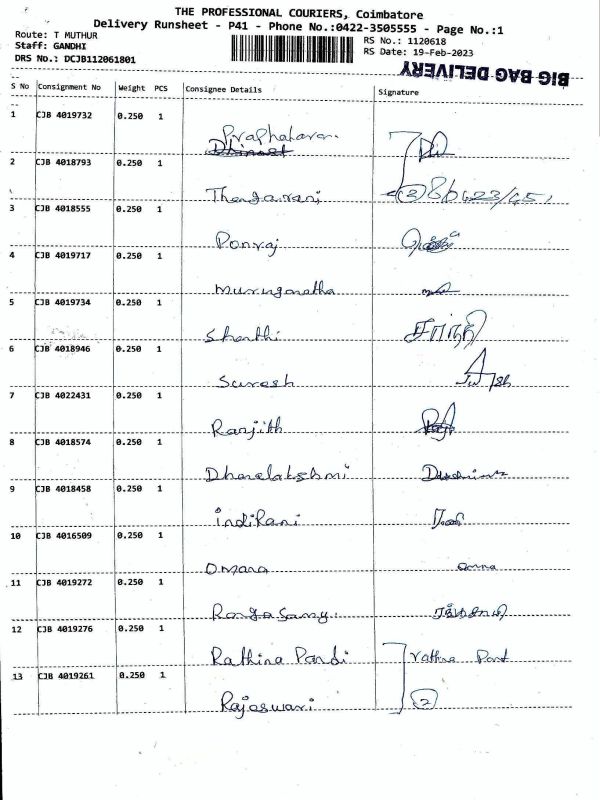 THE PROFESSIONAL COURIERS, Coimbatore
Delivery Runsheet - P41 - Phone No.:0422-3505555 - Page No.:1
Route: T MUTHUR
Staff: GANDHI
DRS No.: DCJB112061801
RS No.: 1120618
RS Date: 19-Feb-2023
BIG BAG DELIVERY
S No Consignment No Weight PCS Consignee Details Signature
1 CJB 4019732 0.250 1
Praphakaran
2 CJB 4018793 0.250 1
Thangarani
3 CJB 4018555 0.250 1
Ponraj
4 CJB 4019717 0.250 1
Muruganatha
5 CJB 4019734 0.250 1
Shanthi சாந்தி
6 CJB 4018946 0.250 1
Suresh
7 CJB 4022431 0.250 1
Ranjith
8 CJB 4018574 0.250 1
Dhanalakshmi
9 CJB 4018458 0.250 1
Indirani
10 CJB 4016509 0.250 1
Omana
11 CJB 4019272 0.250 1
Rangasamy
12 CJB 4019276 0.250 1
Rathina Pandi
13 CJB 4019261 0.250 1
Rajaswari 2